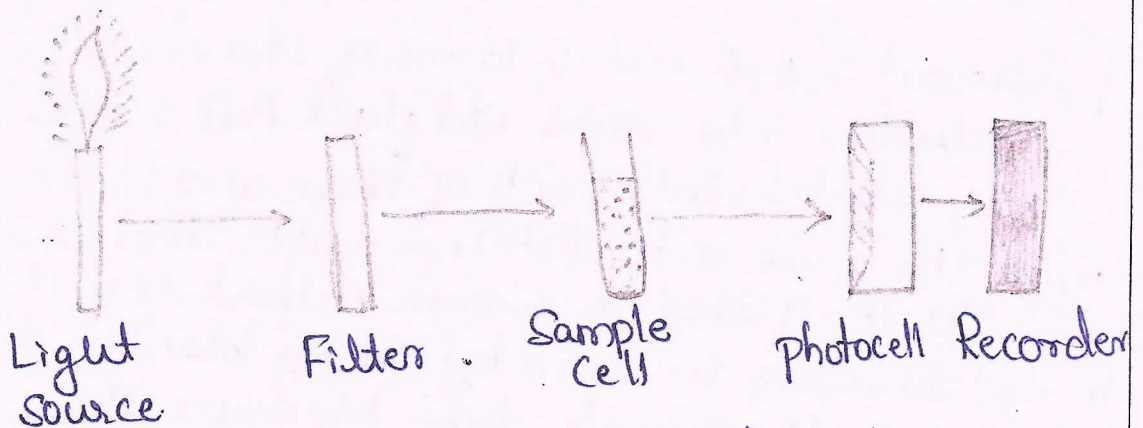 Light
source
Filter
Sample
Cell
photocell
Recorder